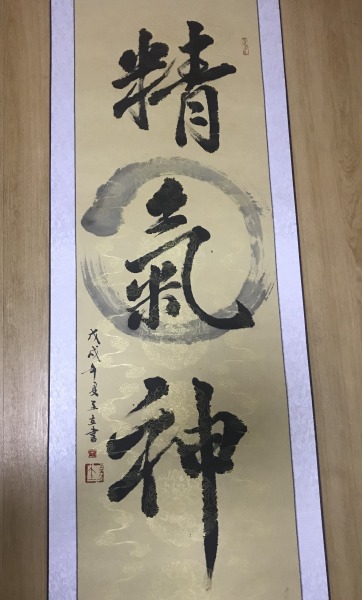 精
氣
神
戊戌年夏王立書